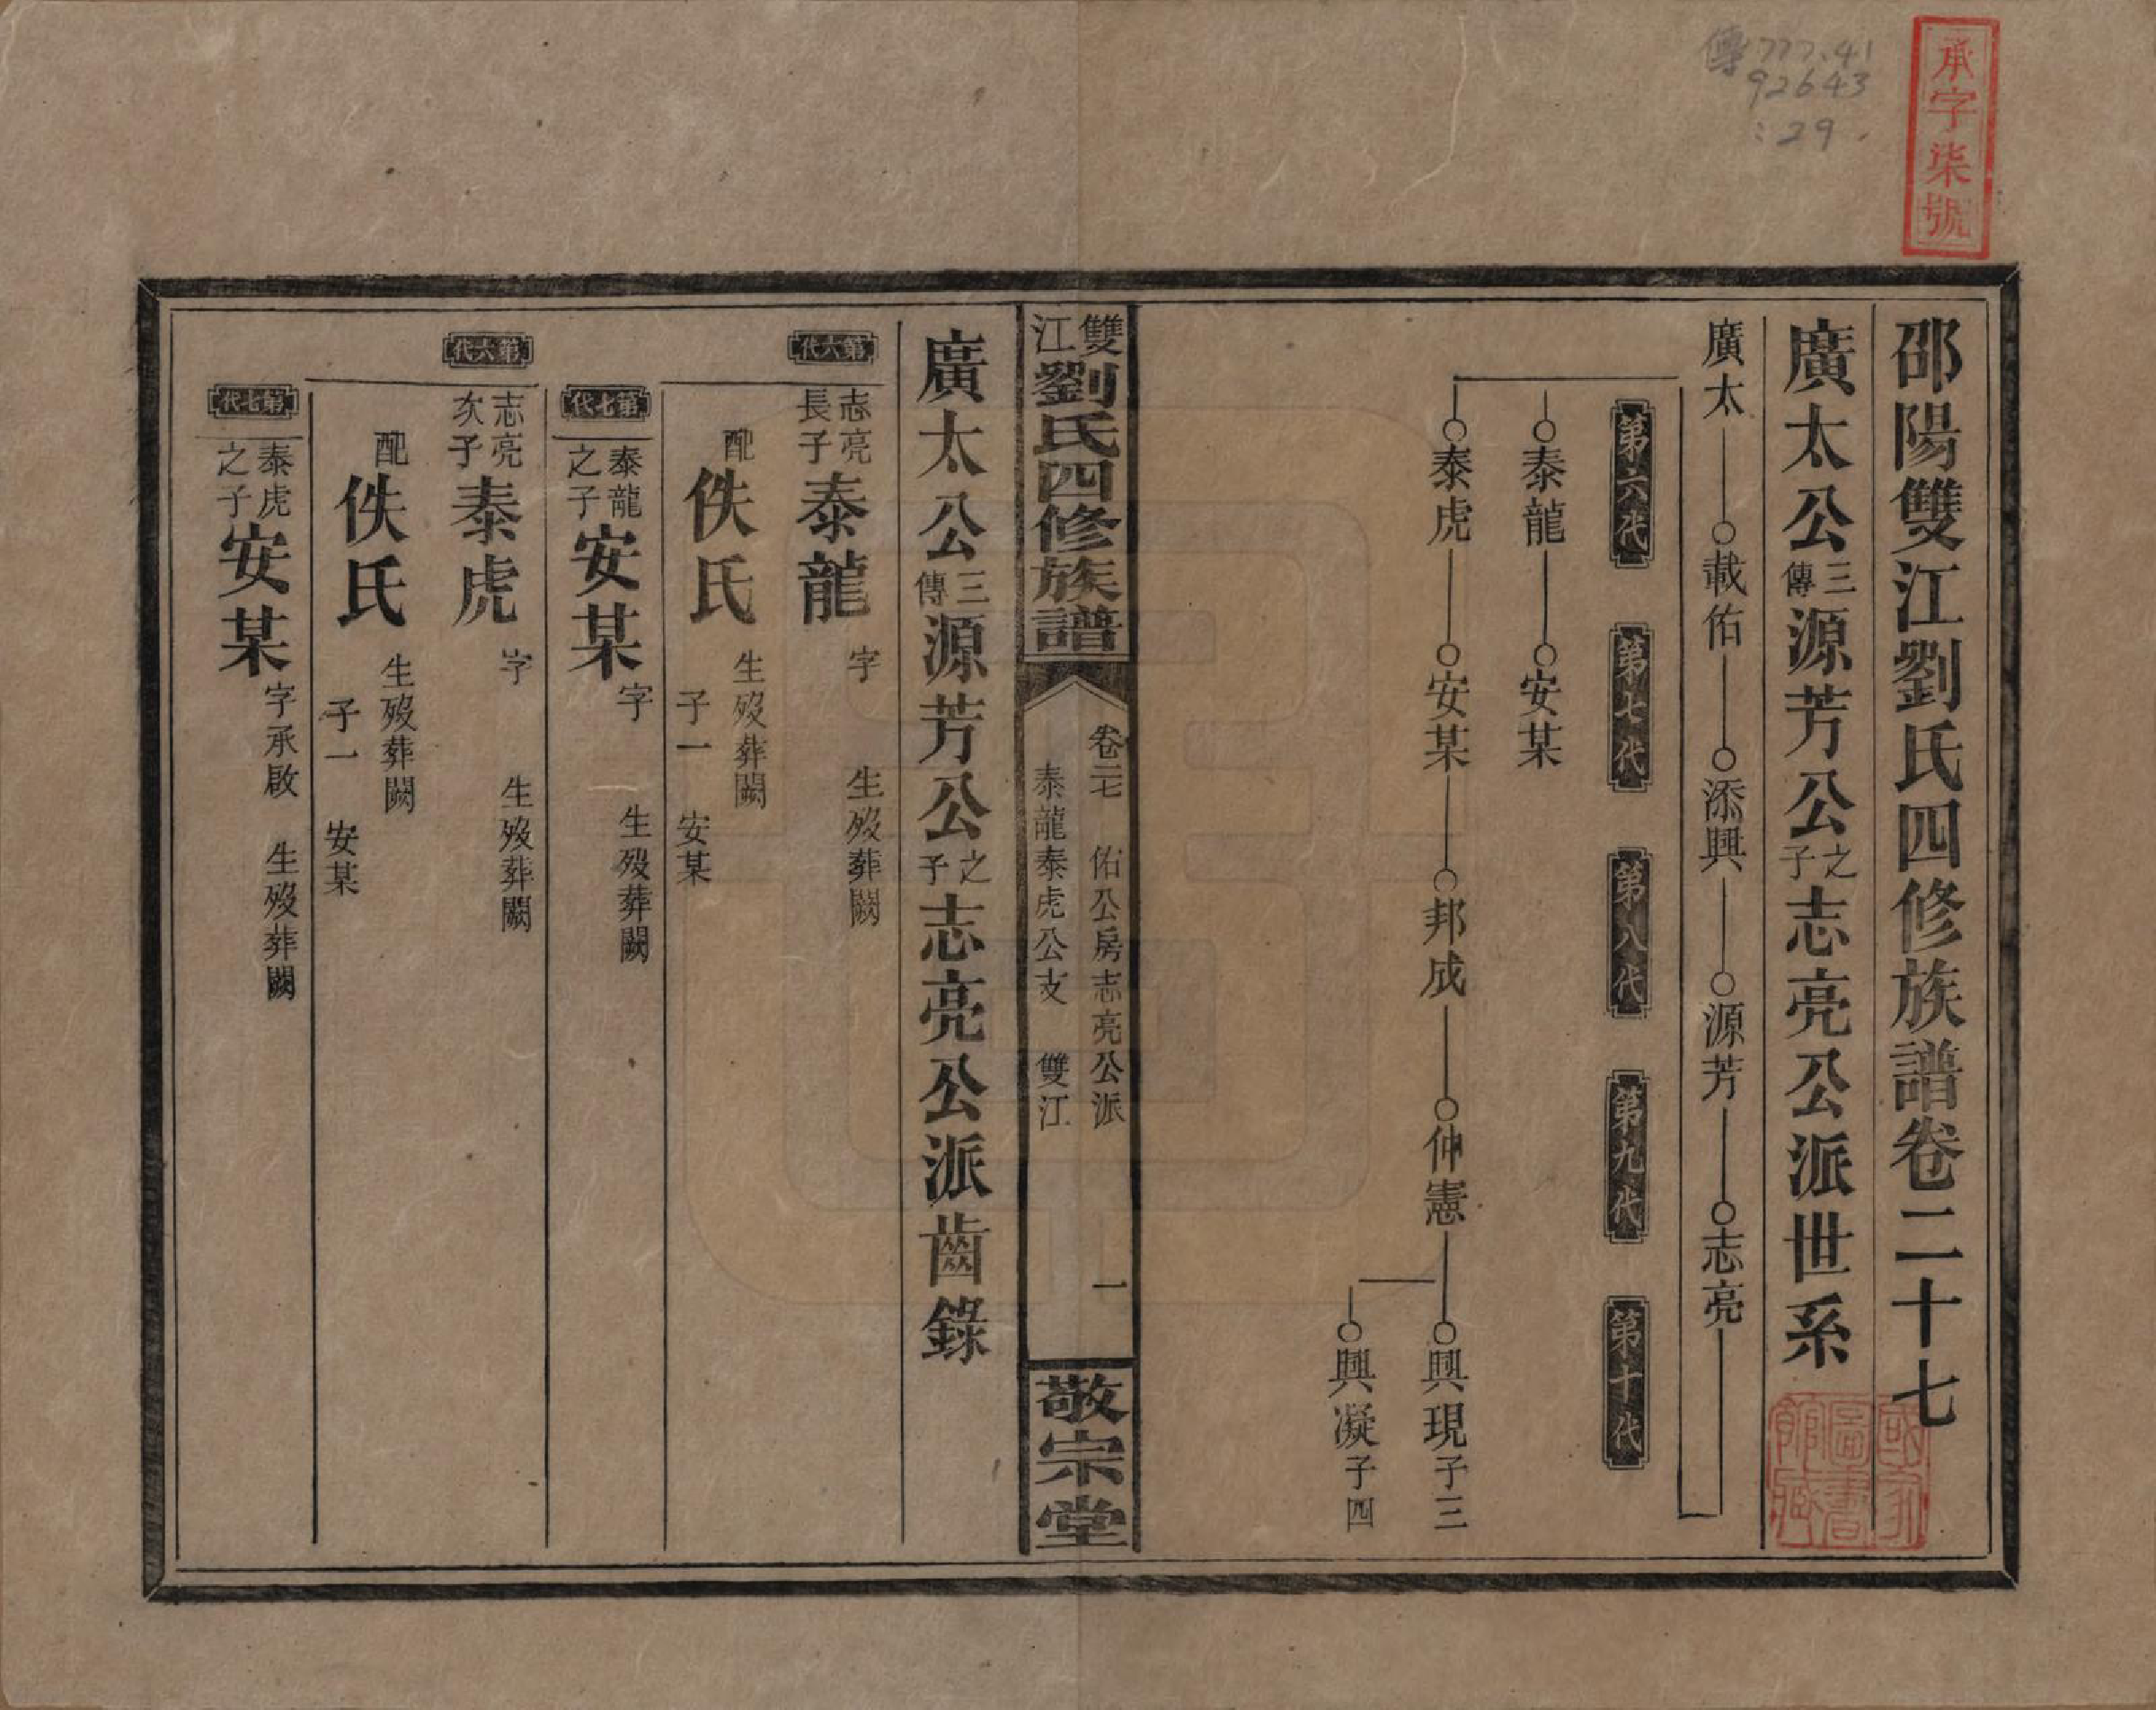 承字柒號
傳777.41
92643
:29.
邵陽雙江劉氏四修族譜卷二十七
廣太公三傳源芳公之子志亮公派世系
廣太 載佑 添興 源芳 志亮
第六代 第七代 第八代 第九代 第十代
泰龍 安某
泰虎 安某 邦成 仲憲 興現子三
興凝子四
國家圖書館藏
雙江劉氏四修族譜
卷二七 佑公房志亮公派 一
泰龍泰虎公支 雙江
敬宗堂
廣太公三傳源芳公之子志亮公派齒錄
第六代
志亮長子泰龍 字 生歿葬闕
配佚氏 生歿葬闕
子一 安某
第七代
泰龍之子安某 字 生歿葬闕
第六代
志亮次子泰虎 字 生歿葬闕
配佚氏 生歿葬闕
子一 安某
第七代
泰虎之子安某 字承啟 生歿葬闕